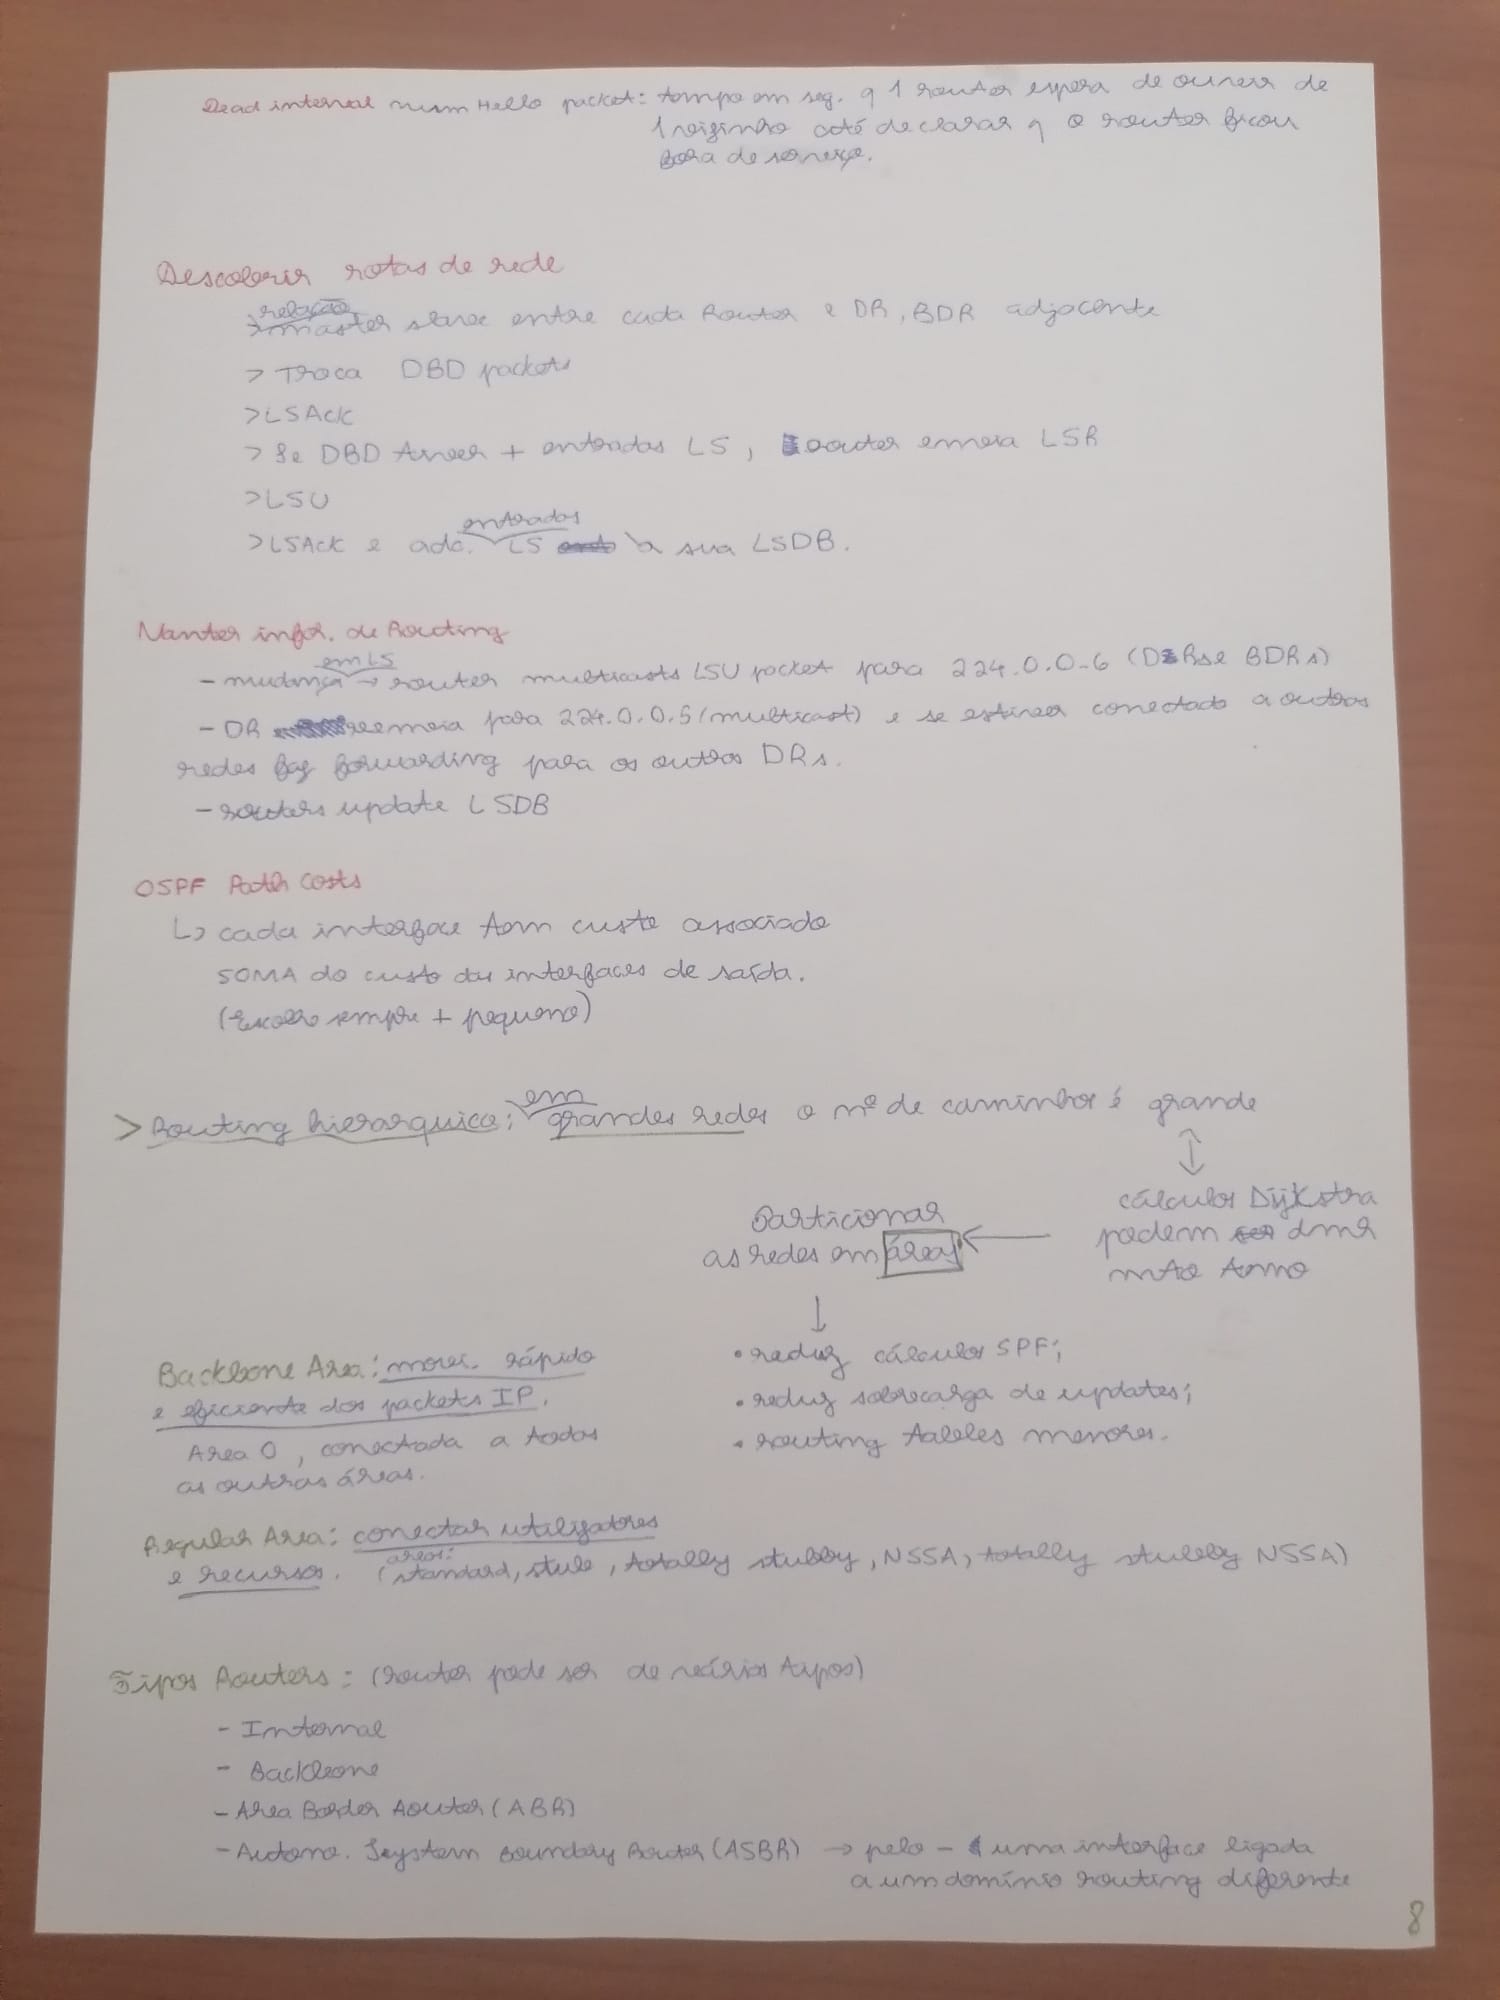 Dead interval num Hello packet: tempo em seg. q 1 router espera de ouvir de
1 vizinho até declarar q o router ficou
fora de serviço.
Descobrir rotas de rede
relação
> master slave entre cada Router e DR, BDR adjacente
> Troca DBD packets
> LSAck
> Se DBD tiver + entradas LS, router envia LSR
> LSU
entradas
> LSAck e adc. LS à sua LSDB.
Manter infor. de Routing
em LS
- mudança → router multicasts LSU packet para 224.0.0.6 (DRs e BDRs)
- DR reenvia para 224.0.0.5 (multicast) e se estiver conectado a outras
redes faz forwarding para os outros DRs.
- routers update LSDB
OSPF Path Costs
↳ cada interface tem custo associado
SOMA do custo das interfaces de saída.
(Escolho sempre + pequeno)
em
> Routing hierarquico: grandes redes o nº de caminhos é grande
↕
cálculos Dijkstra
podem dmr
mto tempo
Particionar
as redes em áreas ←
↓
• reduz cálculos SPF;
• reduz sobrecarga de updates;
• routing tables menores.
Backbone Area: movi. rápido
e eficiente dos packets IP.
Area 0, conectada a todas
as outras áreas.
Regular Area: conectar utilizadores
areas:
e recursos. (standard, stub, totally stubby, NSSA, totally stubby NSSA)
Tipos Routers: (router pode ser de vários tipos)
- Internal
- Backbone
- Area Border Router (ABR)
- Autono. System Boundary Router (ASBR) → pelo - uma interface ligada
a um domínio routing diferente
8